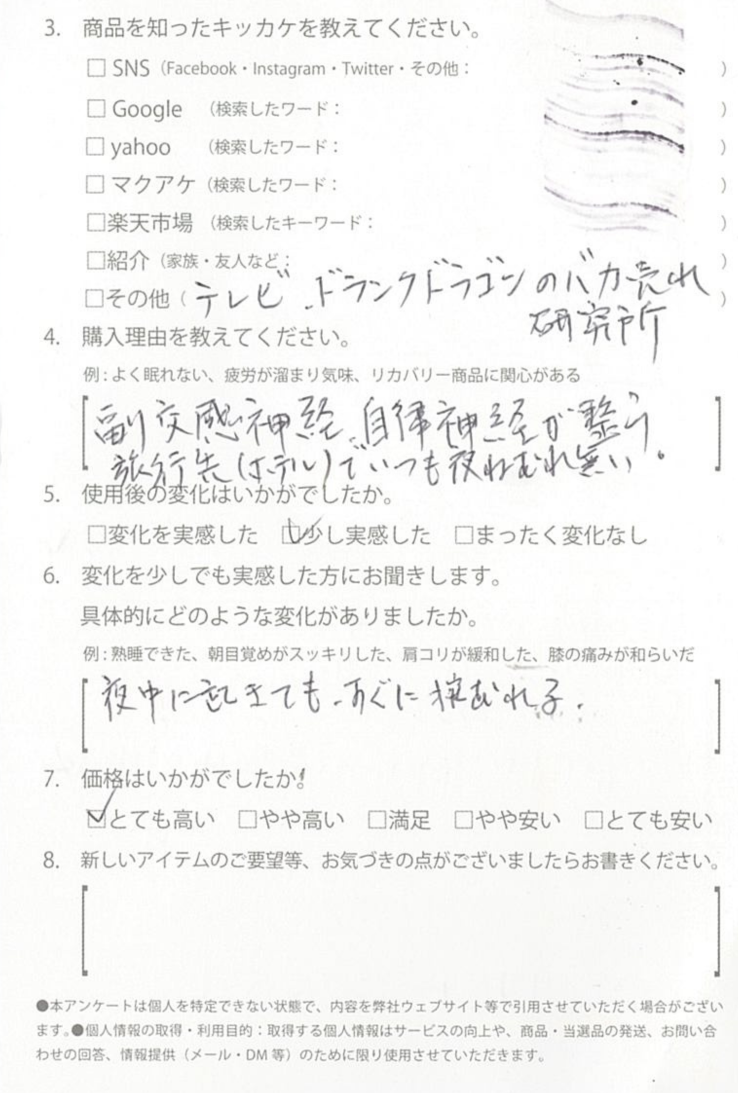 3. 商品を知ったキッカケを教えてください。
□ SNS（Facebook・Instagram・Twitter・その他：　）
□ Google （検索したワード：　）
□ yahoo （検索したワード：　）
□ マクアケ（検索したワード：　）
□楽天市場 （検索したキーワード：　）
□紹介（家族・友人など：　）
□その他（テレビ、ドランクドラゴンのバカ売れ　）
研究所
4. 購入理由を教えてください。
例：よく眠れない、疲労が溜まり気味、リカバリー商品に関心がある
副交感神経、自律神経が整う
旅行先(ホテル)でいつも夜ねむれ無い。
5. 使用後の変化はいかがでしたか。
□変化を実感した ☑少し実感した □まったく変化なし
6. 変化を少しでも実感した方にお聞きします。
具体的にどのような変化がありましたか。
例：熟睡できた、朝目覚めがスッキリした、肩コリが緩和した、膝の痛みが和らいだ
夜中に起きても、すぐに むれる。
7. 価格はいかがでしたか。
☑とても高い □やや高い □満足 □やや安い □とても安い
8. 新しいアイテムのご要望等、お気づきの点がございましたらお書きください。
●本アンケートは個人を特定できない状態で、内容を弊社ウェブサイト等で引用させていただく場合がござい
ます。●個人情報の取得・利用目的：取得する個人情報はサービスの向上や、商品・当選品の発送、お問い合
わせの回答、情報提供（メール・DM 等）のために限り使用させていただきます。